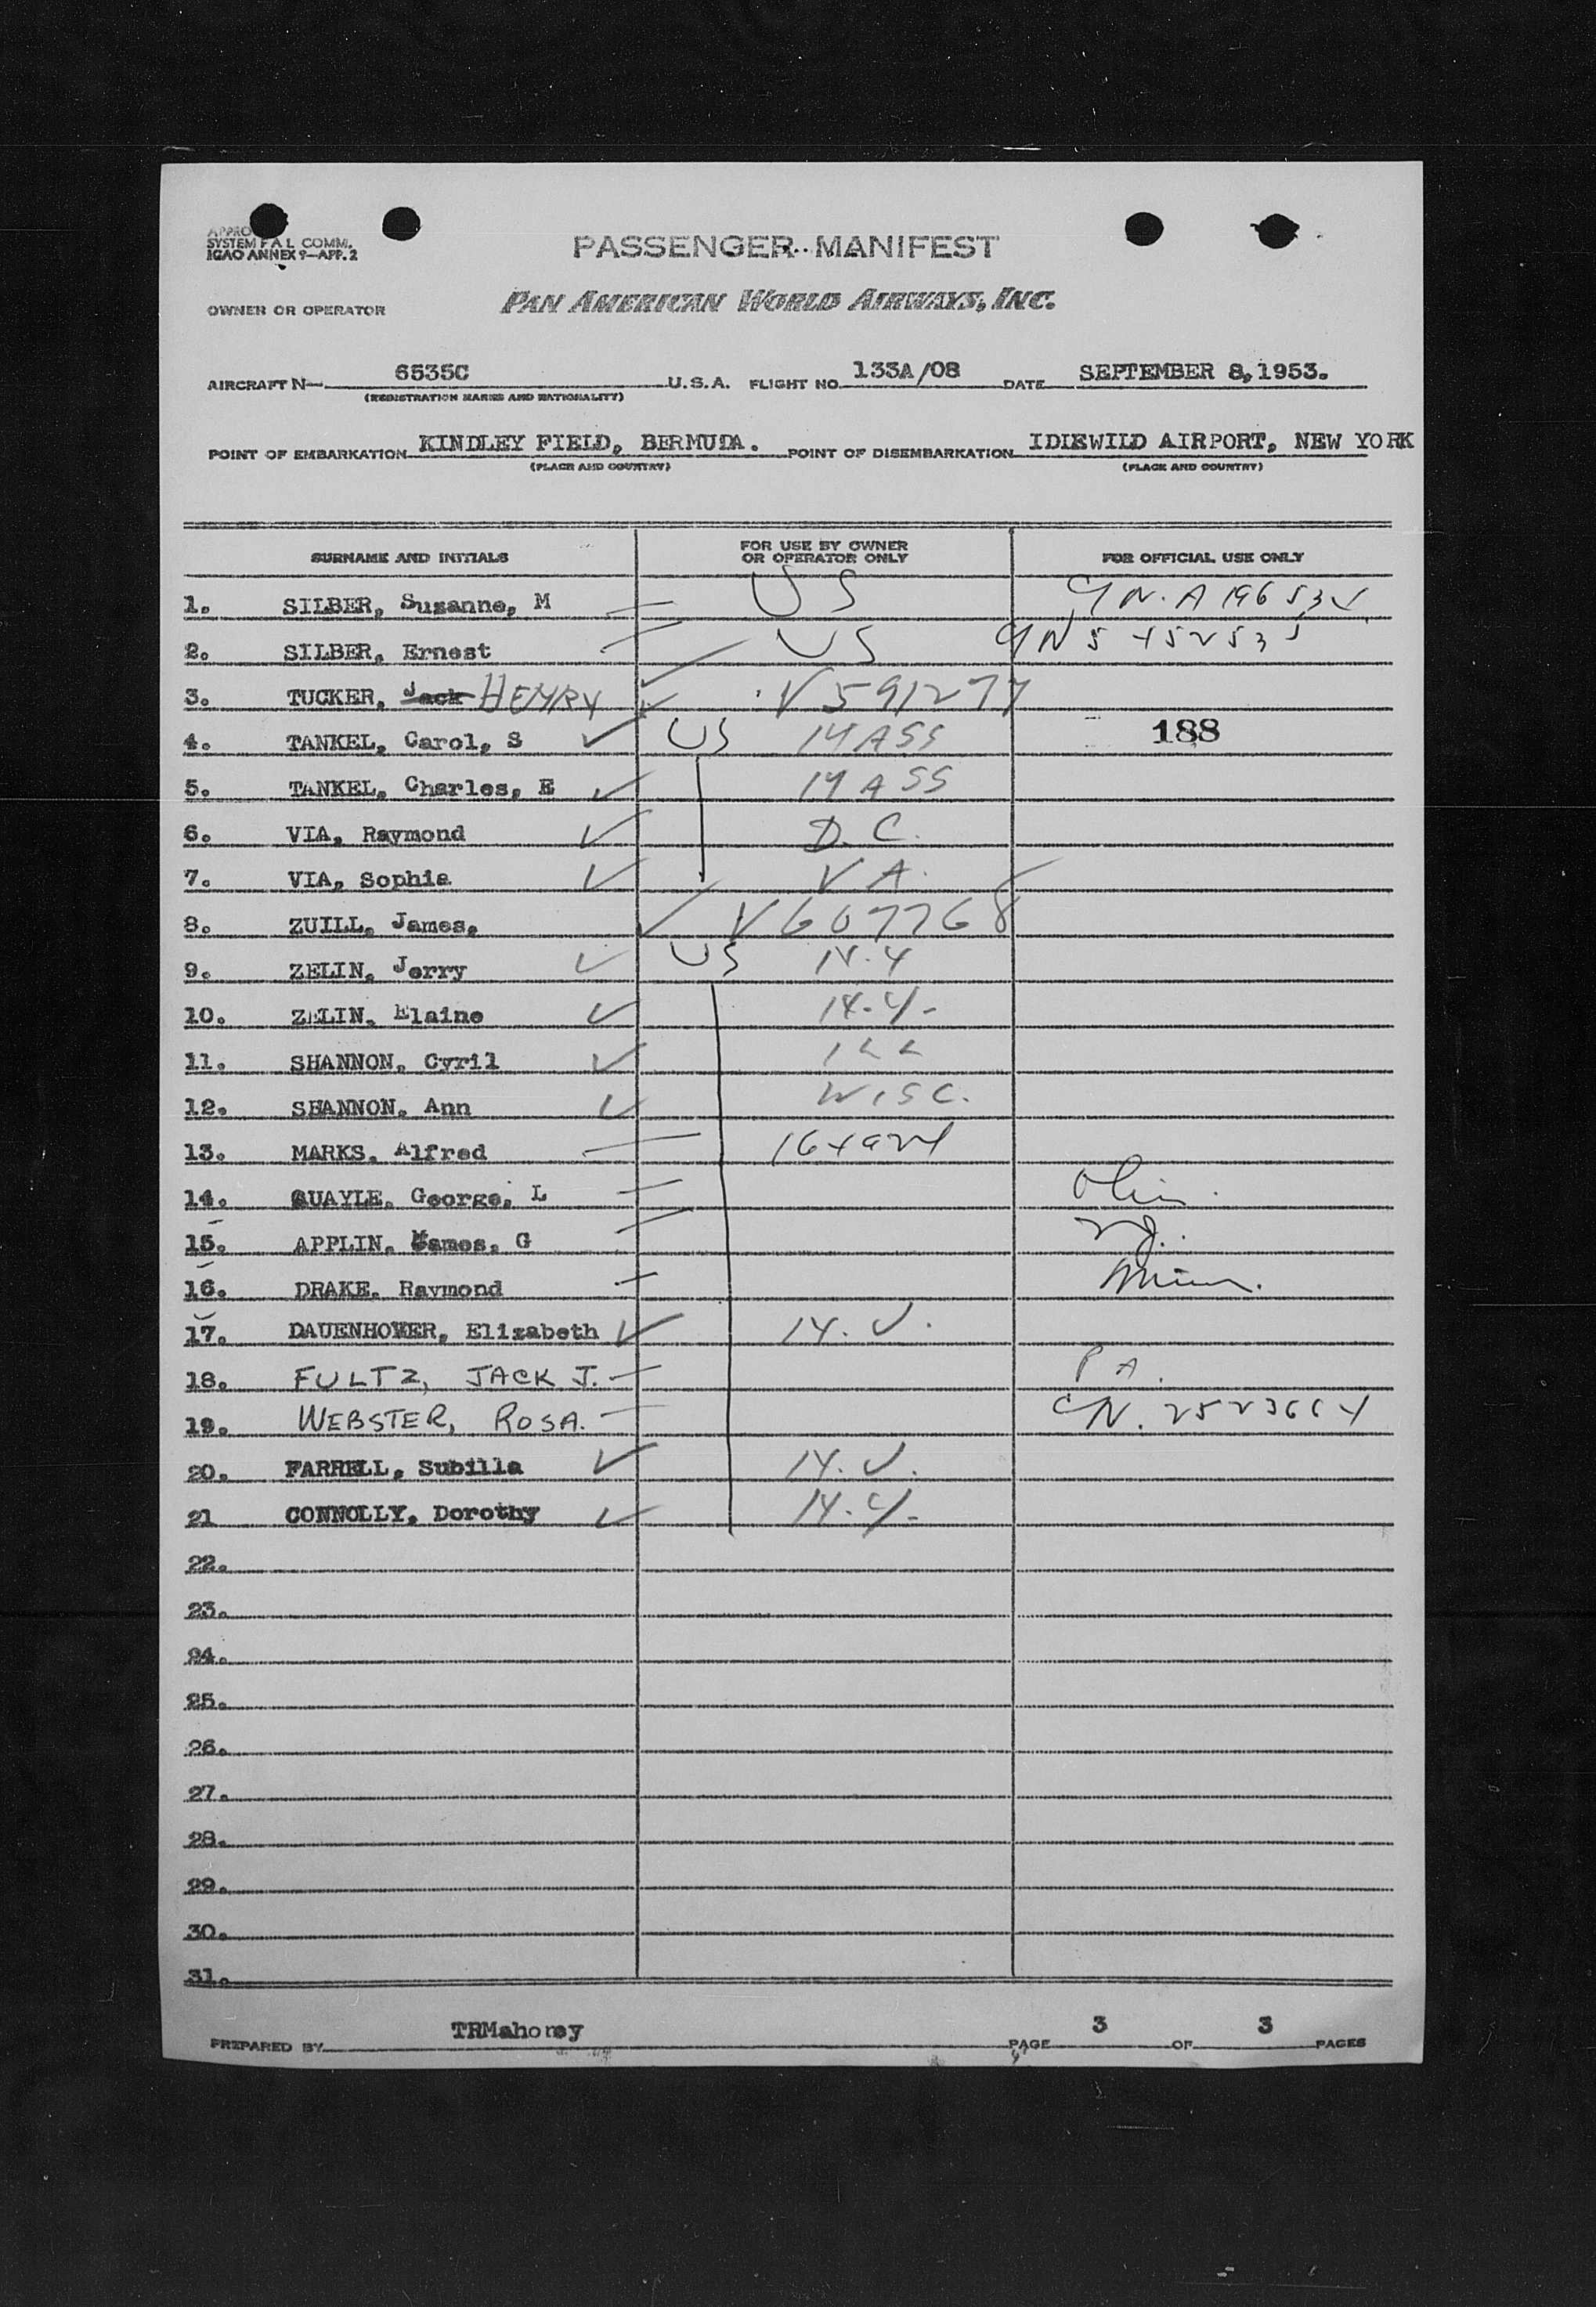 SYSTEM F A L COMM.
ICAO ANNEX 9—APP. 2
PASSENGER MANIFEST
OWNER OR OPERATOR PAN AMERICAN WORLD AIRWAYS, INC.
AIRCRAFT N— 6535C U.S.A. FLIGHT NO. 133A/08 DATE SEPTEMBER 8, 1953.
(REGISTRATION MARKS AND NATIONALITY)
POINT OF EMBARKATION KINDLEY FIELD, BERMUDA. POINT OF DISEMBARKATION IDLEWILD AIRPORT, NEW YORK
(PLACE AND COUNTRY) (PLACE AND COUNTRY)
SURNAME AND INITIALS FOR USE BY OWNER OR OPERATOR ONLY FOR OFFICIAL USE ONLY
1. SILBER, Suzanne, M US
2. SILBER, Ernest US
3. TUCKER, Jack HENRY V591277
4. TANKEL, Carol, S US MASS 188
5. TANKEL, Charles, E MASS
6. VIA, Raymond D.C.
7. VIA, Sophia VA.
8. ZUILL, James, V607768
9. ZELIN, Jerry US N.Y
10. ZELIN, Elaine N.Y.
11. SHANNON, Cyril ILL
12. SHANNON, Ann WISC.
13. MARKS, Alfred
14. QUAYLE, George, L
15. APPLIN, James, G NJ.
16. DRAKE, Raymond
17. DAUENHOWER, Elizabeth N.J.
18. FULTZ, JACK J. PA.
19. WEBSTER, ROSA.
20. FARRELL, Subilla N.J.
21 CONNOLLY, Dorothy N.Y.
22.
23.
24.
25.
26.
27.
28.
29.
30.
31.
PREPARED BY TRMahoney PAGE 3 OF 3 PAGES